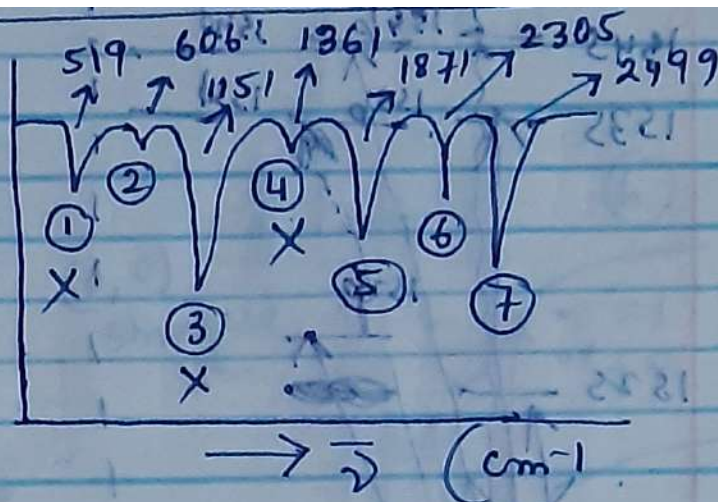 519 606 1361 1871 2305
1151 2499
① ② ③ ④ ⑤ ⑥ ⑦
X X X
→ ν̅ (cm-1